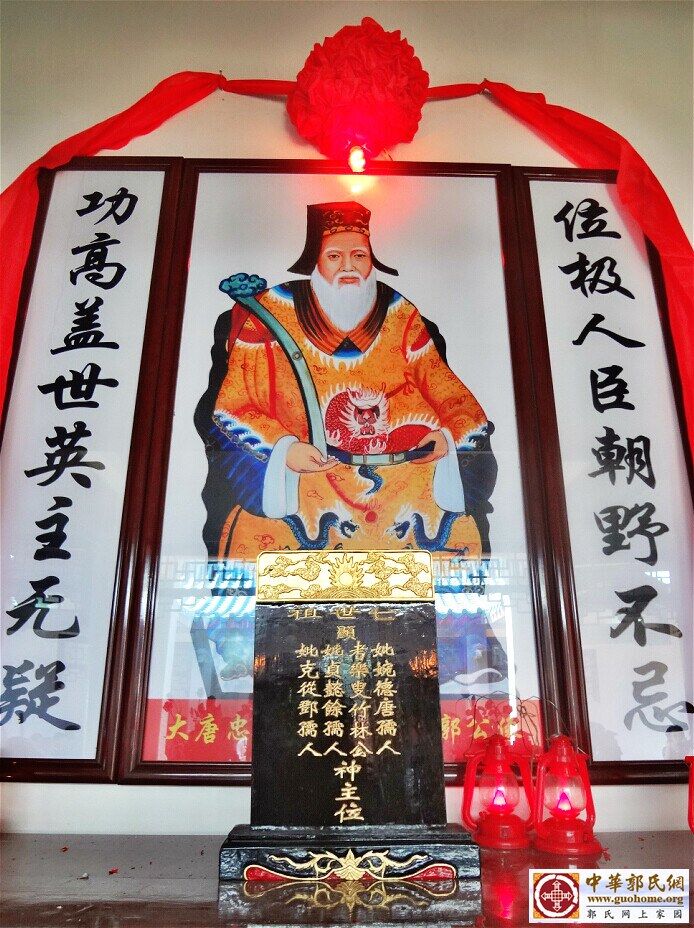 位极人臣朝野不忌
功高盖世英主无疑
七世祖
顯
妣婉德唐孺人
考樂叟竹林公
妣貞懿餘孺人
妣克從鄧孺人
神主位
大唐忠
郭公
中華郭氏網
www.guohome.org
郭氏网上家园